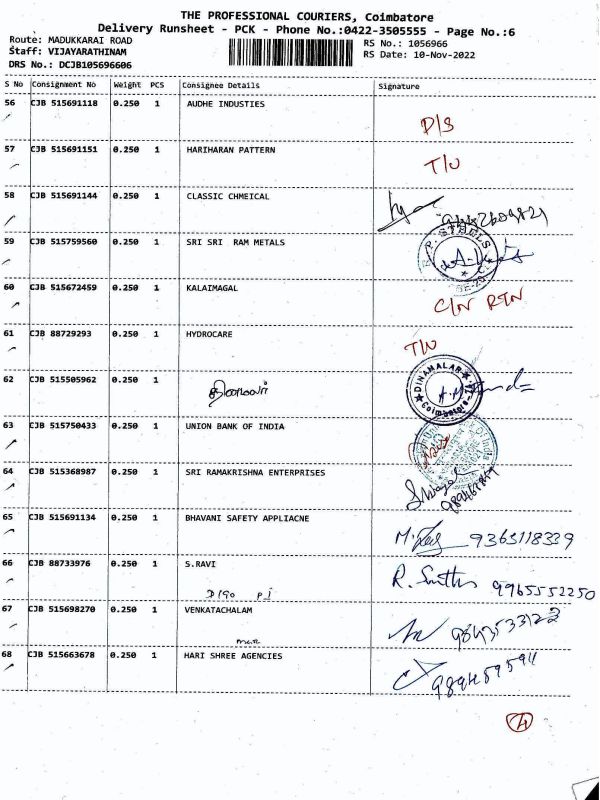 THE PROFESSIONAL COURIERS, Coimbatore
Delivery Runsheet - PCK - Phone No.:0422-3505555 - Page No.:6
Route: MADUKKARAI ROAD
Staff: VIJAYARATHINAM
DRS No.: DCJB105696606
RS No.: 1056966
RS Date: 10-Nov-2022
S No Consignment No Weight PCS Consignee Details Signature
56 CJB 515691118 0.250 1 AUDHE INDUSTIES
D/S
57 CJB 515691151 0.250 1 HARIHARAN PATTERN
T/U
58 CJB 515691144 0.250 1 CLASSIC CHMEICAL
59 CJB 515759560 0.250 1 SRI SRI RAM METALS
60 CJB 515672459 0.250 1 KALAIMAGAL
C/N RTN
61 CJB 88729293 0.250 1 HYDROCARE
T/U
62 CJB 515505962 0.250 1 தினமலர்
DINAMALAR
Coimbatore
63 CJB 515750433 0.250 1 UNION BANK OF INDIA
64 CJB 515368987 0.250 1 SRI RAMAKRISHNA ENTERPRISES
65 CJB 515691134 0.250 1 BHAVANI SAFETY APPLIACNE
9365118339
66 CJB 88733976 0.250 1 S.RAVI
9965552250
67 CJB 515698270 0.250 1 VENKATACHALAM
9843533122
68 CJB 515663678 0.250 1 HARI SHREE AGENCIES
9894595911